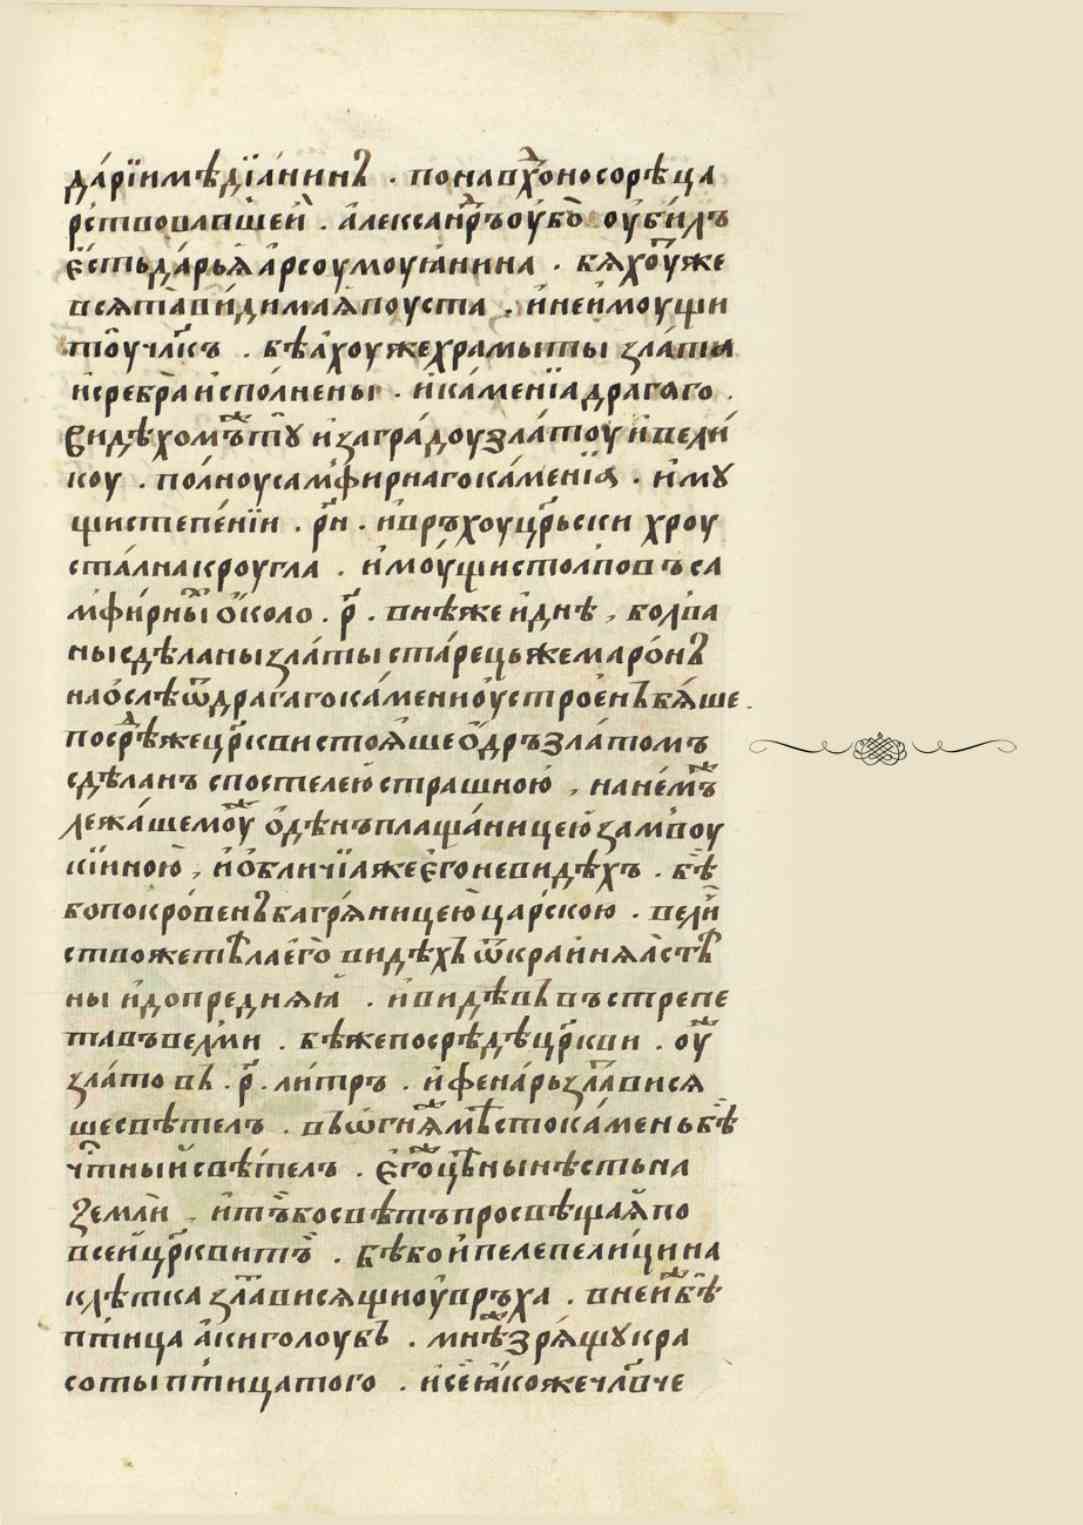 да́рїимѣдїа́нинъ . понавⷯоносорѣца
рⷭ҇твовавшей . а҆леѯаⷩрⷣъоу҆бо оу҆би́лъ
є҆́стьда́рьѧа҆рсоумоуꙗ́нина . бѧхоуⷤже
всѧта̀ви́димаѧпоуста . и҆неи҆моущи
тоу̑члк҃ъ . бѣа́хоужехрамыты зла́та
и҆сребра̀и҆спо́лнены . и҆ка́менїадрагаго .
видѣхомъⷤтꙋ и҆загра́доузла́тоу и҆вели́
коу . по́лноусамфирнагока́менїѧ . и҆мꙋ
щистепе́нїи . р҃н . и҆връхоуцр҃ьски хроу
ста́лнакроугла . и҆мо́ущистолповъса
мфи́рныⷯ о҆́коло . р҃ . внѣжеи҆днѣ , болва
нысдѣланызла́тыста́рецьжемаро́нъ
нао҆слѣѿдрагагока́менноу҆строе́нъбѧ́ше .
посреⷣжецр҃квистоѧ́шео҆́дръзла́томъ
сдѣланъ спостелеюстрашною , нане́мъⷤ
лежа́шемоуⷤ о҆дѣнъплаща́ницеюзамвоу
кїиною , и҆о҆бличїажеє҆гоневидѣхъ . бѣⷤ
бопокро́венъбагрѧ́ницеюца́рскою . велиⷱ
ствожетѣлаего̀ видѣхъ ѿкраи́нѧа҆стѣⷩ
ны и҆допреднѧꙗ̀ . и҆видѣвъ въстрепе
тавъвелми . бѣжепосрѣдѣцр҃кви . оуⷤ
зла́то въ . р҃ . ли́тръ . и҆фена́рьзлаⷮвисѧ
шесвѣтелъ . въѡ҆гнѧⷤмѣстока́меньбѣⷤ
чⷭ҇тныйсвѣ́телъ . є҆гоⷤцѣⷩнынѣстьна
землѝ , и҆тъⷤбосвѣтъпросвѣщаѧ́по
всейцр҃квитъⷤ . бѣбои҆пелепели́цина
клѣтказлаⷮависѧщиоу҆връ́ха . внейⷤбѣ
пти́ца а҆киголоубъ . мнѣⷤзрѧ́щꙋкра
сотыпти́цатого . и҆сеꙗ́кожечл҃вче